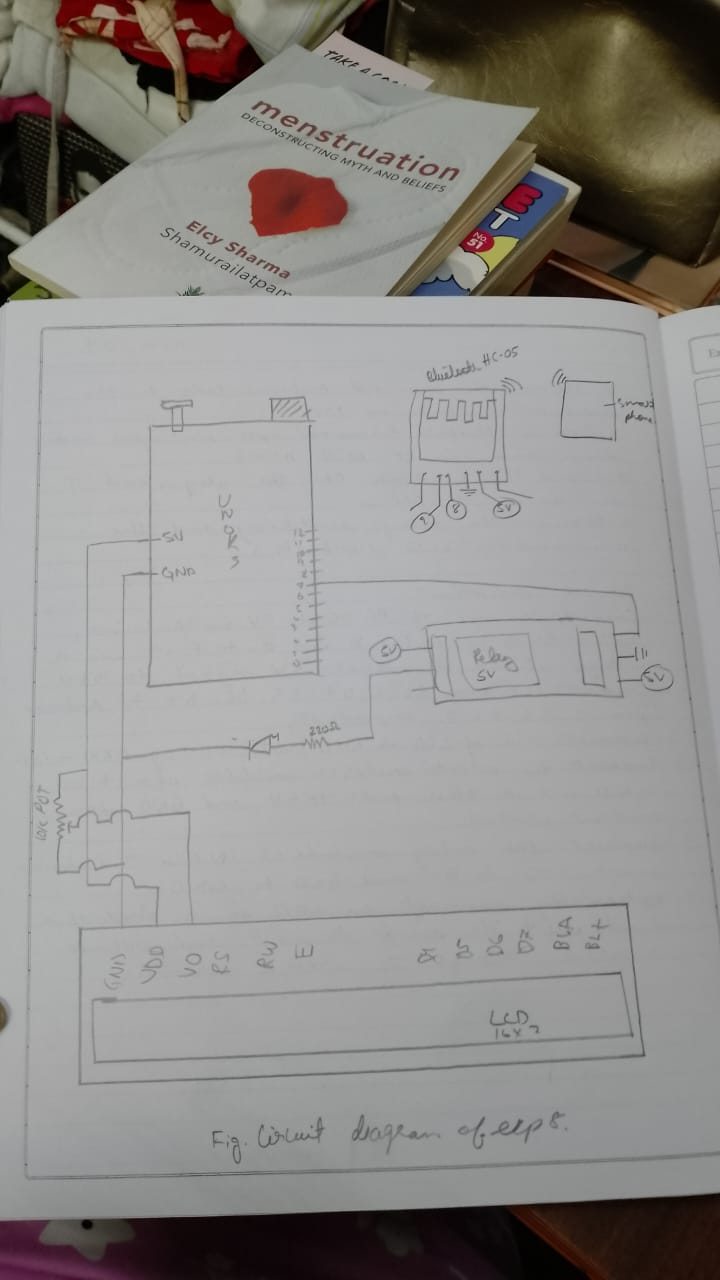 TAKE A
menstruation
DECONSTRUCTING MYTH AND BELIEFS
Elcy Sharma
Shamurailatpam
E
T
No.
51
HC-05
smart
phone
9
8
5V
UNO R3
5V
GND
5V
Relay
5V
5V
220Ω
10K POT
GND
VDD
VO
RS
RW
E
D5
D6
D7
BLA
LCD
16x2
Fig. Circuit diagram of exp 8.